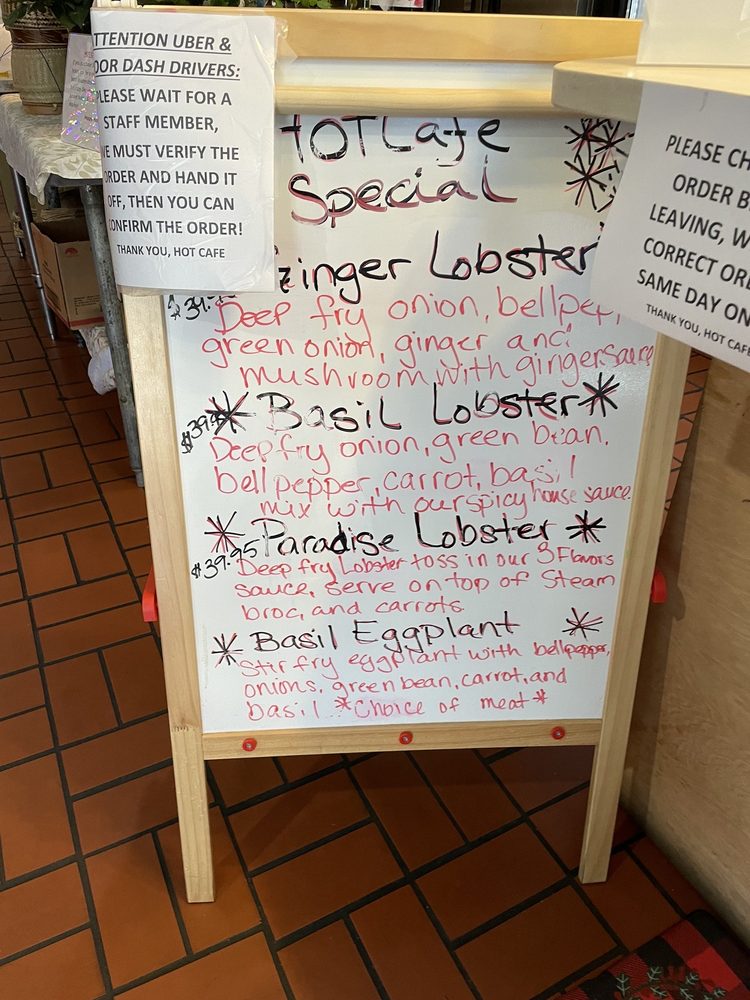 ATTENTION UBER &
DOOR DASH DRIVERS:
PLEASE WAIT FOR A
STAFF MEMBER,
WE MUST VERIFY THE
ORDER AND HAND IT
OFF, THEN YOU CAN
CONFIRM THE ORDER!
THANK YOU, HOT CAFE
HOT Cafe
Special
Ginger Lobster
Deep fry onion, bellpepp
green onion, ginger and
mushroom with ginger sauce
Basil Lobster
Deep fry onion, green bean,
bell pepper, carrot, basil
mix with our spicy house sauce.
Paradise Lobster
$39.95
Deep fry Lobster toss in our 3 Flavors
sauce, serve on top of Steam
broc, and carrots
Basil Eggplant
Stir fry eggplant with bellpepper,
onions, green bean, carrot, and
basil *Choice of meat*
PLEASE CH
ORDER B
LEAVING, W
CORRECT ORD
SAME DAY ON
THANK YOU, HOT CAFE